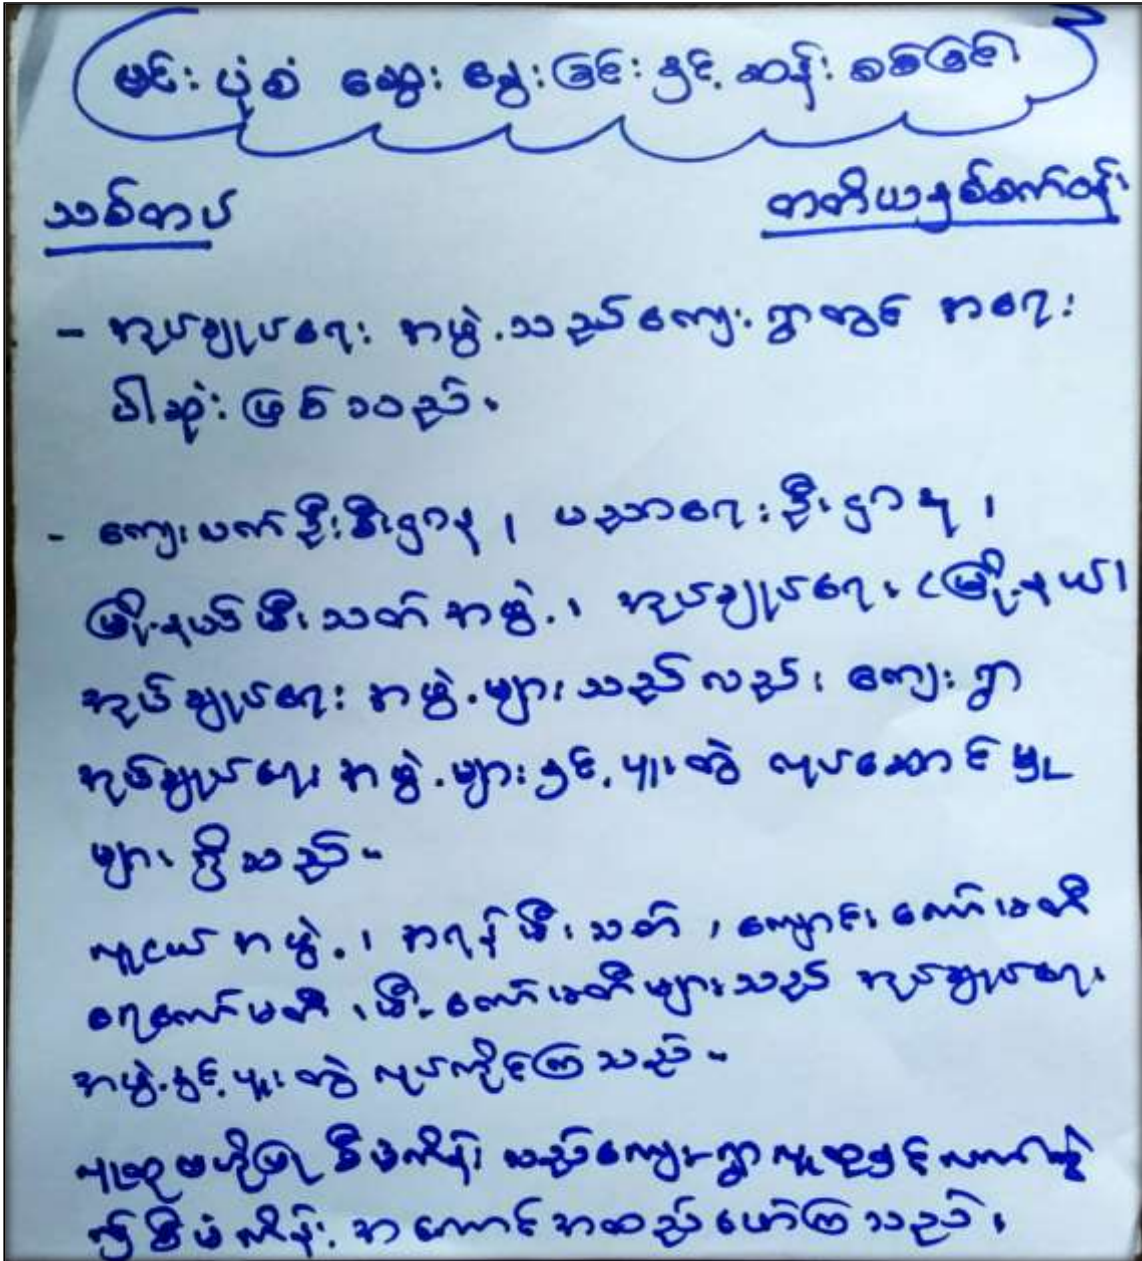 ဗင်းပုံစံ ဆွေးနွေးခြင်းနှင့် ဆန်းစစ်ခြင်း
သစ်တပ် တတိယနှစ်စက်ဝန်း
- အုပ်ချုပ်ရေး အဖွဲ့သည်ကျေးရွာတွင် အရေး
ပါဆုံးဖြစ်သည်။
- ကျေးလက်ဦးစီးဌာန၊ ပညာရေးဦးဌာန၊
မြို့နယ်မီးသတ်အဖွဲ့၊ အုပ်ချုပ်ရေး (မြို့နယ်)
အုပ်ချုပ်ရေး အဖွဲ့များသည်လည်း ကျေးရွာ
အုပ်ချုပ်ရေး အဖွဲ့များနှင့် ပူးတွဲ လုပ်ဆောင်မှု
များ ရှိသည်။
လူငယ်အဖွဲ့၊ အရန်မီးသတ်၊ ကျောင်းကော်မတီ
ရေကော်မတီ၊ မီးကော်မတီများသည် အုပ်ချုပ်ရေး
အဖွဲ့နှင့် ပူးတွဲ လုပ်ကိုင်ကြသည်။
လူထုဗဟိုပြု စီမံကိန်း သည်ကျေးရွာလူထုနှင့်လက်တွဲ
၍ စီမံကိန်း အကောင်အထည်ဖော်ကြသည်။